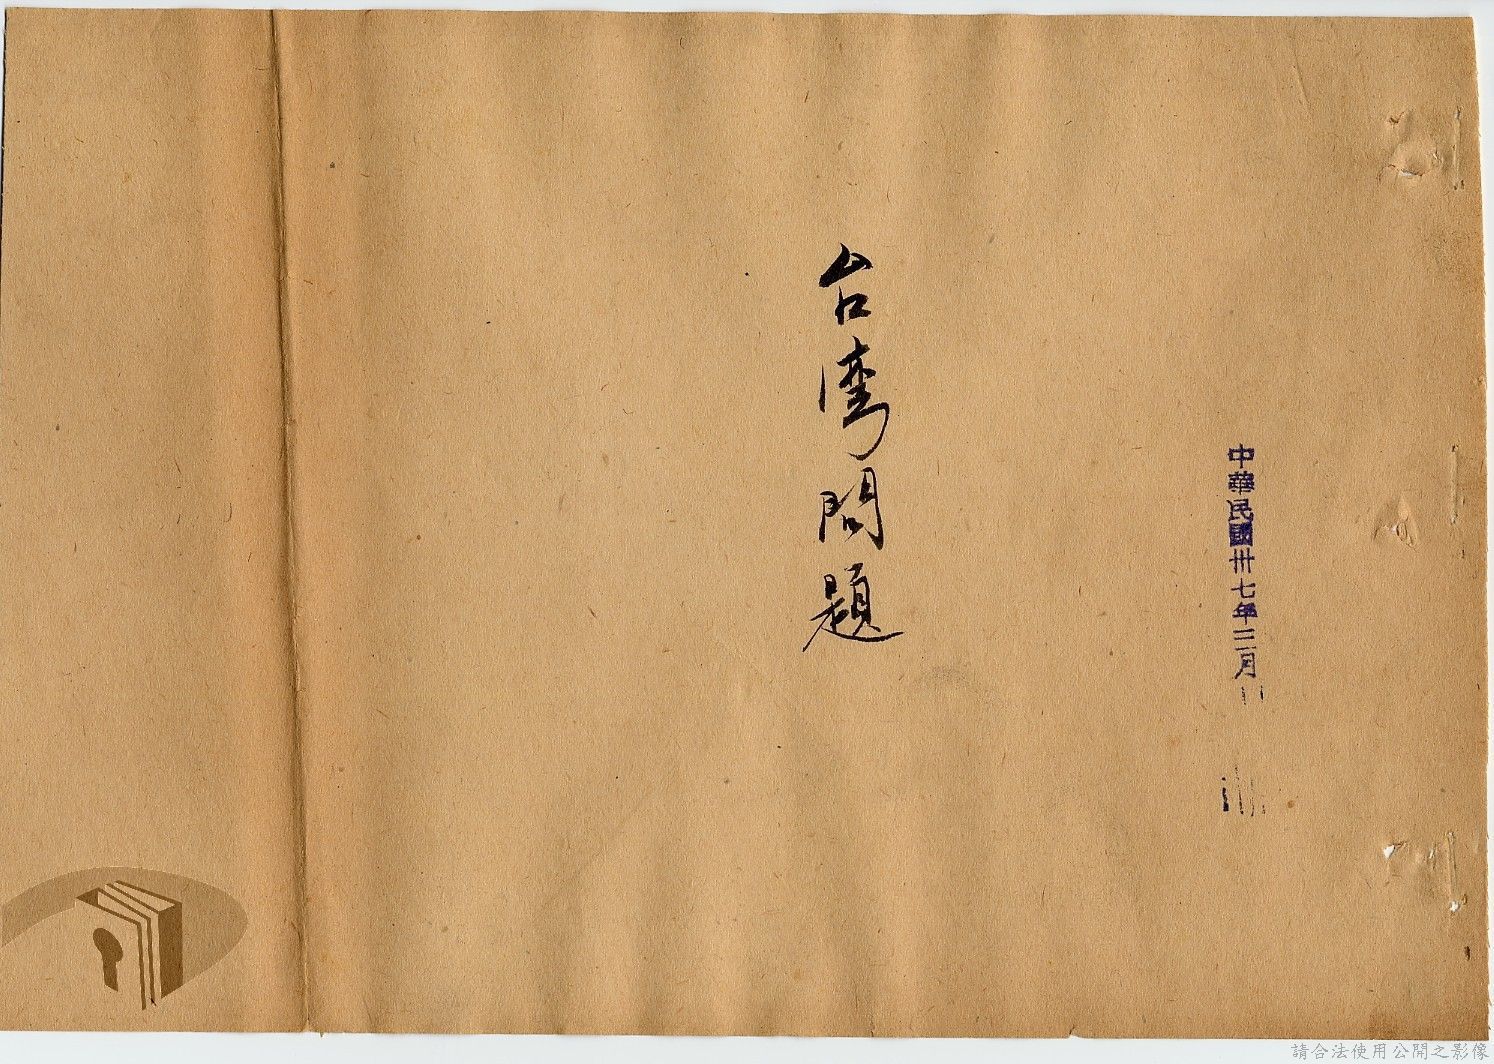 中華民國卅七年三月
台湾問題
請合法使用公開之影像